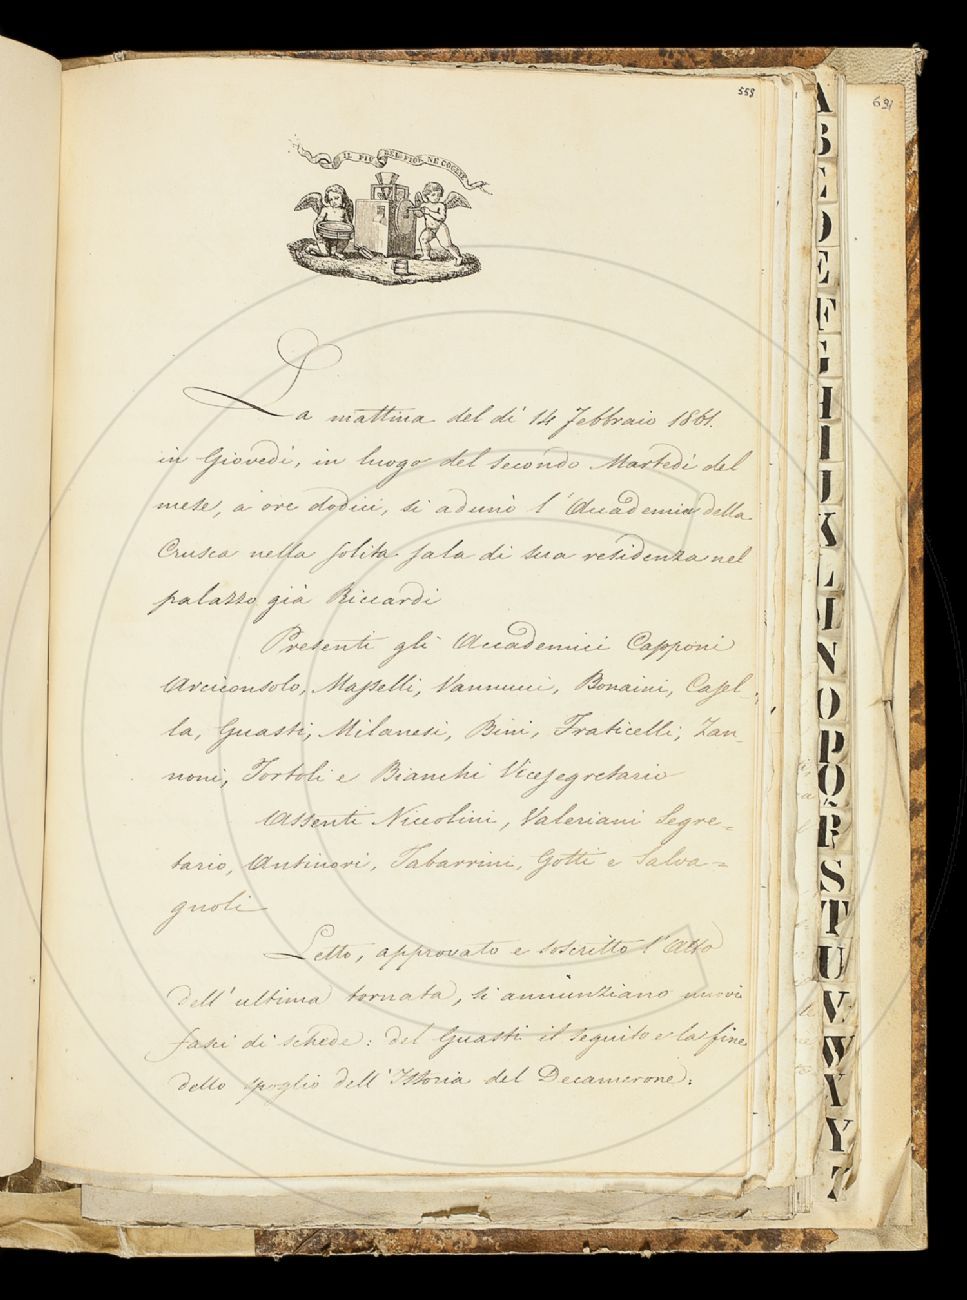 559
691
IL PIÙ BEL FIOR NE COGLIE
La mattina del dì 14 Febbraio 1861.
in Giovedì, in luogo del secondo Martedì del
mese, a ore dodici, si adunò l'Accademia della
Crusca nella solita sala di sua residenza nel
palazzo già Riccardi
Presenti gli Accademici Capponi
Arciconsolo, Masselli, Vannucci, Bonaini, Casel-
la, Guasti, Milanesi, Bini, Fraticelli, Zan-
noni, Tortoli e Bianchi Vicesegretario
Assenti Niccolini, Valeriani Segre=
tario, Antinori, Tabarrini, Gotti e Salva=
gnoli
Letto, approvato e soscritto l'Atto
dell'ultima tornata, si annunziano nuovi
fasci di schede: del Guasti il seguito e la fine
dello spoglio dell'Istoria del Decamerone:
A
B
C
D
E
F
G
H
I
J
K
L
M
N
O
P
Q
R
S
T
U
V
W
X
Y
Z